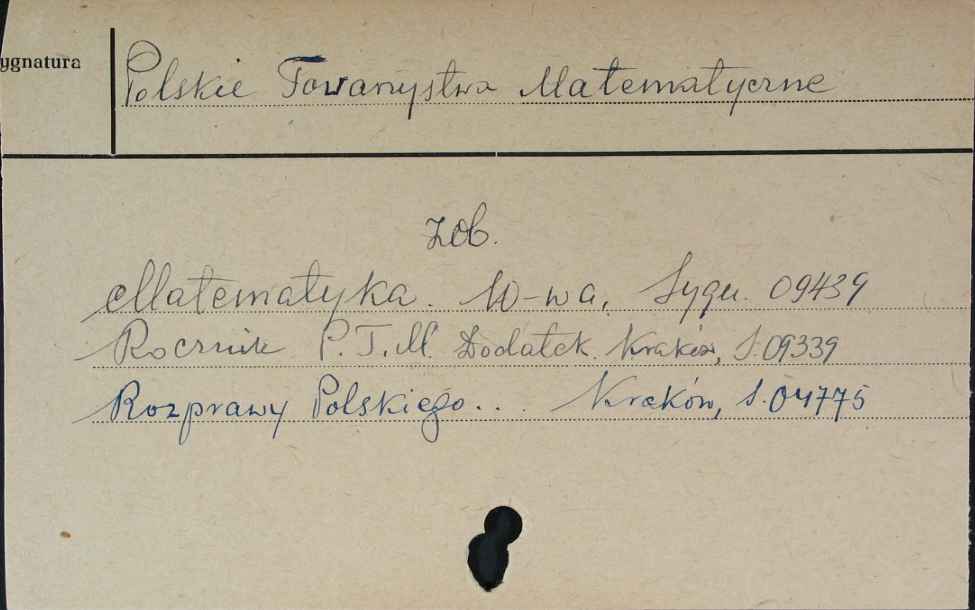 ygnatura
Polskie Towarzystwo Matematyczne
zob.
Matematyka. W-wa, Sygn. 09439
Rocznik P.T.M. Dodatek. Kraków, S. 09339
Rozprawy Polskiego... Kraków, S. 04775